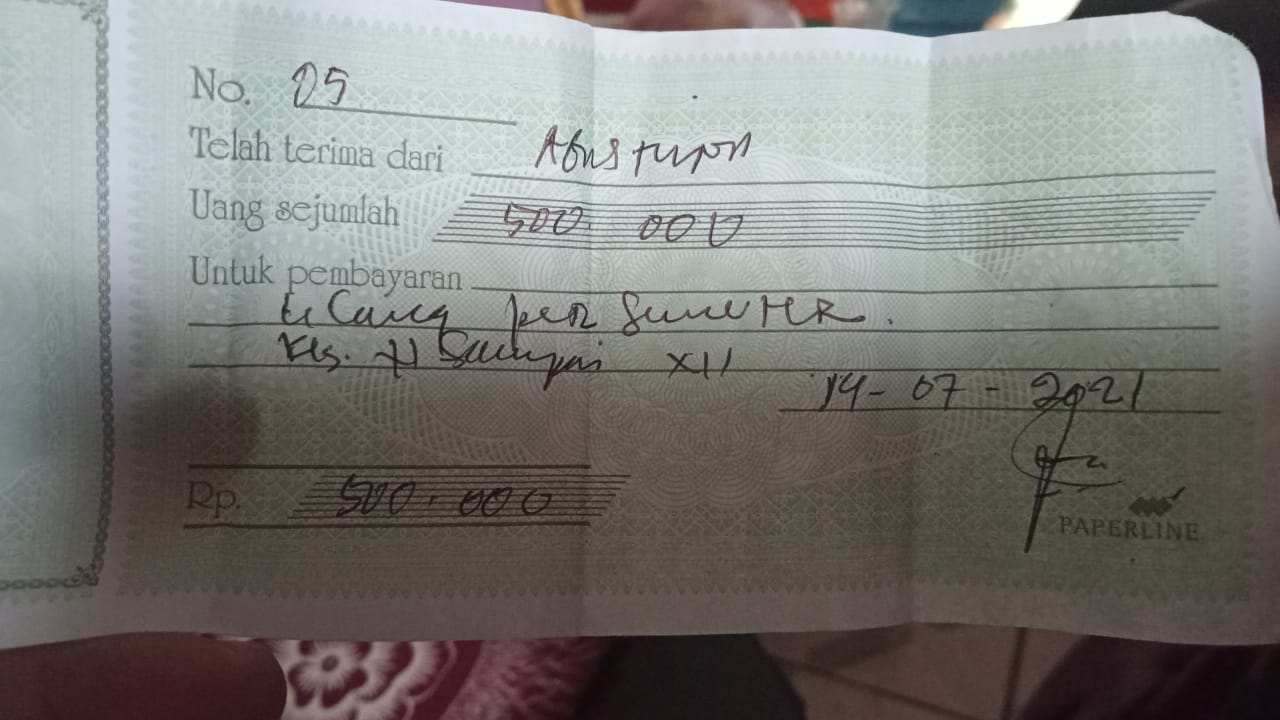 No. 05
Telah terima dari
Uang sejumlah 500.000
Untuk pembayaran
per
Kls. XI Sampai XII
14-07-2021
Rp. 500.000
PAPERLINE